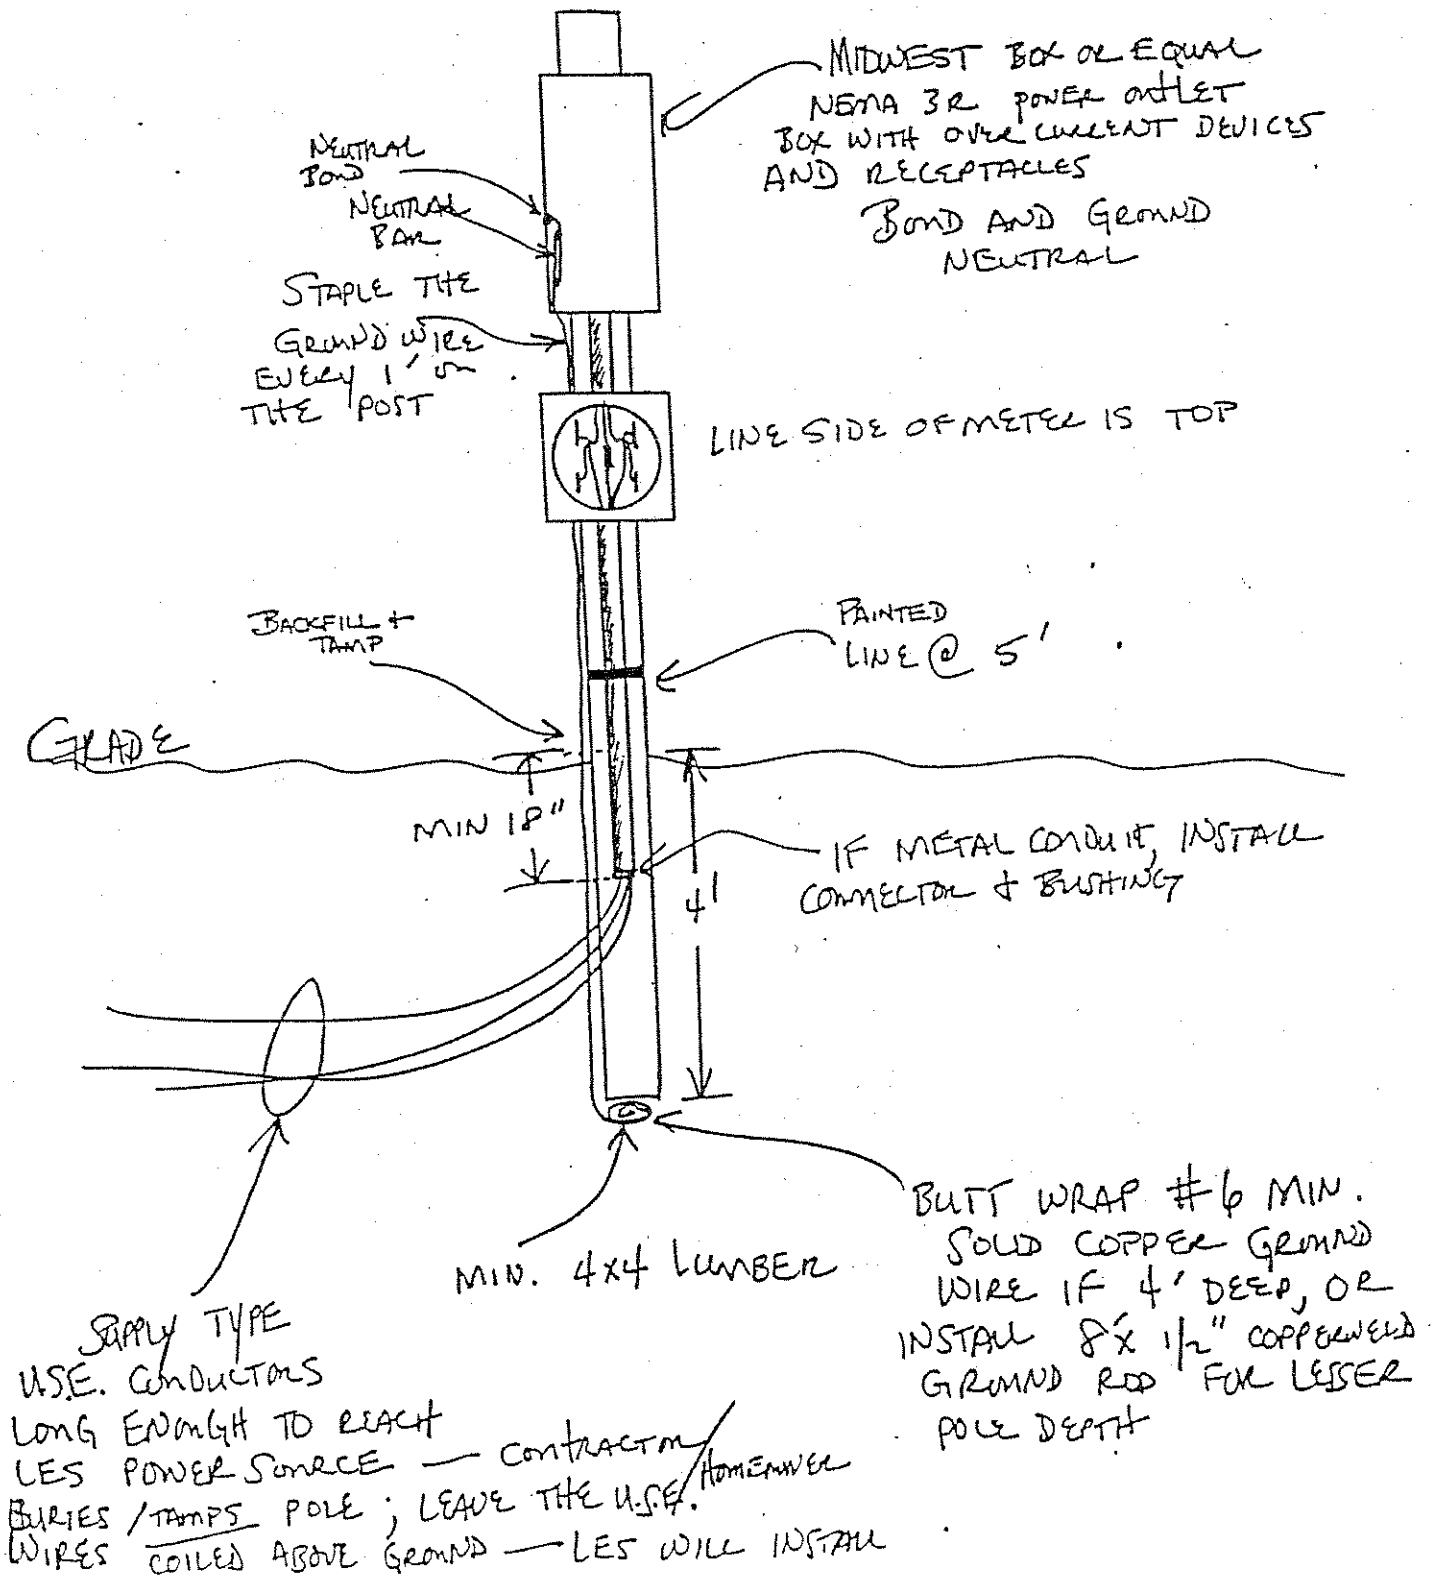 MIDWEST BOX OR EQUAL
NEMA 3R POWER OUTLET
BOX WITH OVER CURRENT DEVICES
AND RECEPTACLES
BOND AND GROUND
NEUTRAL
NEUTRAL
BOND
NEUTRAL
BAR
STAPLE THE
GROUND WIRE
EVERY 1' ON
THE POST
LINE SIDE OF METER IS TOP
BACKFILL +
TAMP
PAINTED
LINE @ 5'
GRADE
MIN 18"
4'
IF METAL CONDUIT, INSTALL
CONNECTOR & BUSHING
BUTT WRAP #6 MIN.
SOLID COPPER GROUND
WIRE IF 4' DEEP, OR
INSTALL 8'X 1/2" COPPERWELD
GROUND ROD FOR LESSER
POLE DEPTH
MIN. 4X4 LUMBER
SUPPLY TYPE
U.S.E. CONDUCTORS
LONG ENOUGH TO REACH
LES POWER SOURCE — CONTRACTOR/HOMEOWNER
BURIES / TAMPS POLE ; LEAVE THE U.S.E.
WIRES COILED ABOVE GROUND — LES WILL INSTALL